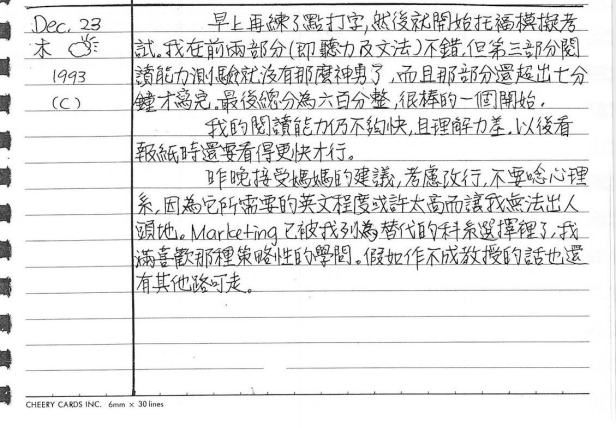 Dec. 23
木
1993
(C)
早上再練了點打字,然後就開始托福模擬考
試。我在前兩部分(即聽力及文法)不錯,但第三部分閱
讀能力測驗就沒有那麼神勇了,而且那部分還超出七分
鐘才寫完。最後總分為六百分整,很棒的一個開始。
我的閱讀能力仍不夠快,且理解力差。以後看
報紙時還要看得更快才行。
昨晚接受媽媽的建議,考慮改行,不要唸心理
系,因為它所需要的英文程度或許太高而讓我無法出人
頭地。Marketing已被我列為替代的科系選擇裡了,我
滿喜歡那種策略性的學問。假如作不成教授的話也還
有其他路可走。
CHEERY CARDS INC. 6mm × 30 lines